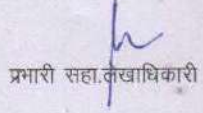 प्रभारी सहा.लेखाधिकारी